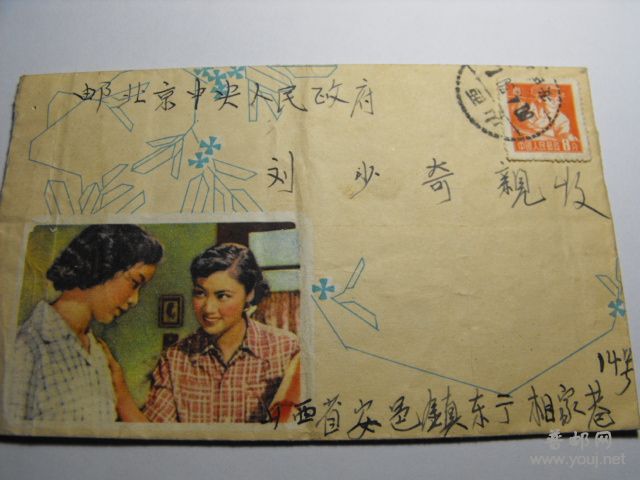 邮北京中央人民政府
刘少奇親收
山西
中国人民邮政
8分
14号
山西省安邑镇东于相家巷
普邮网
www.youj.net